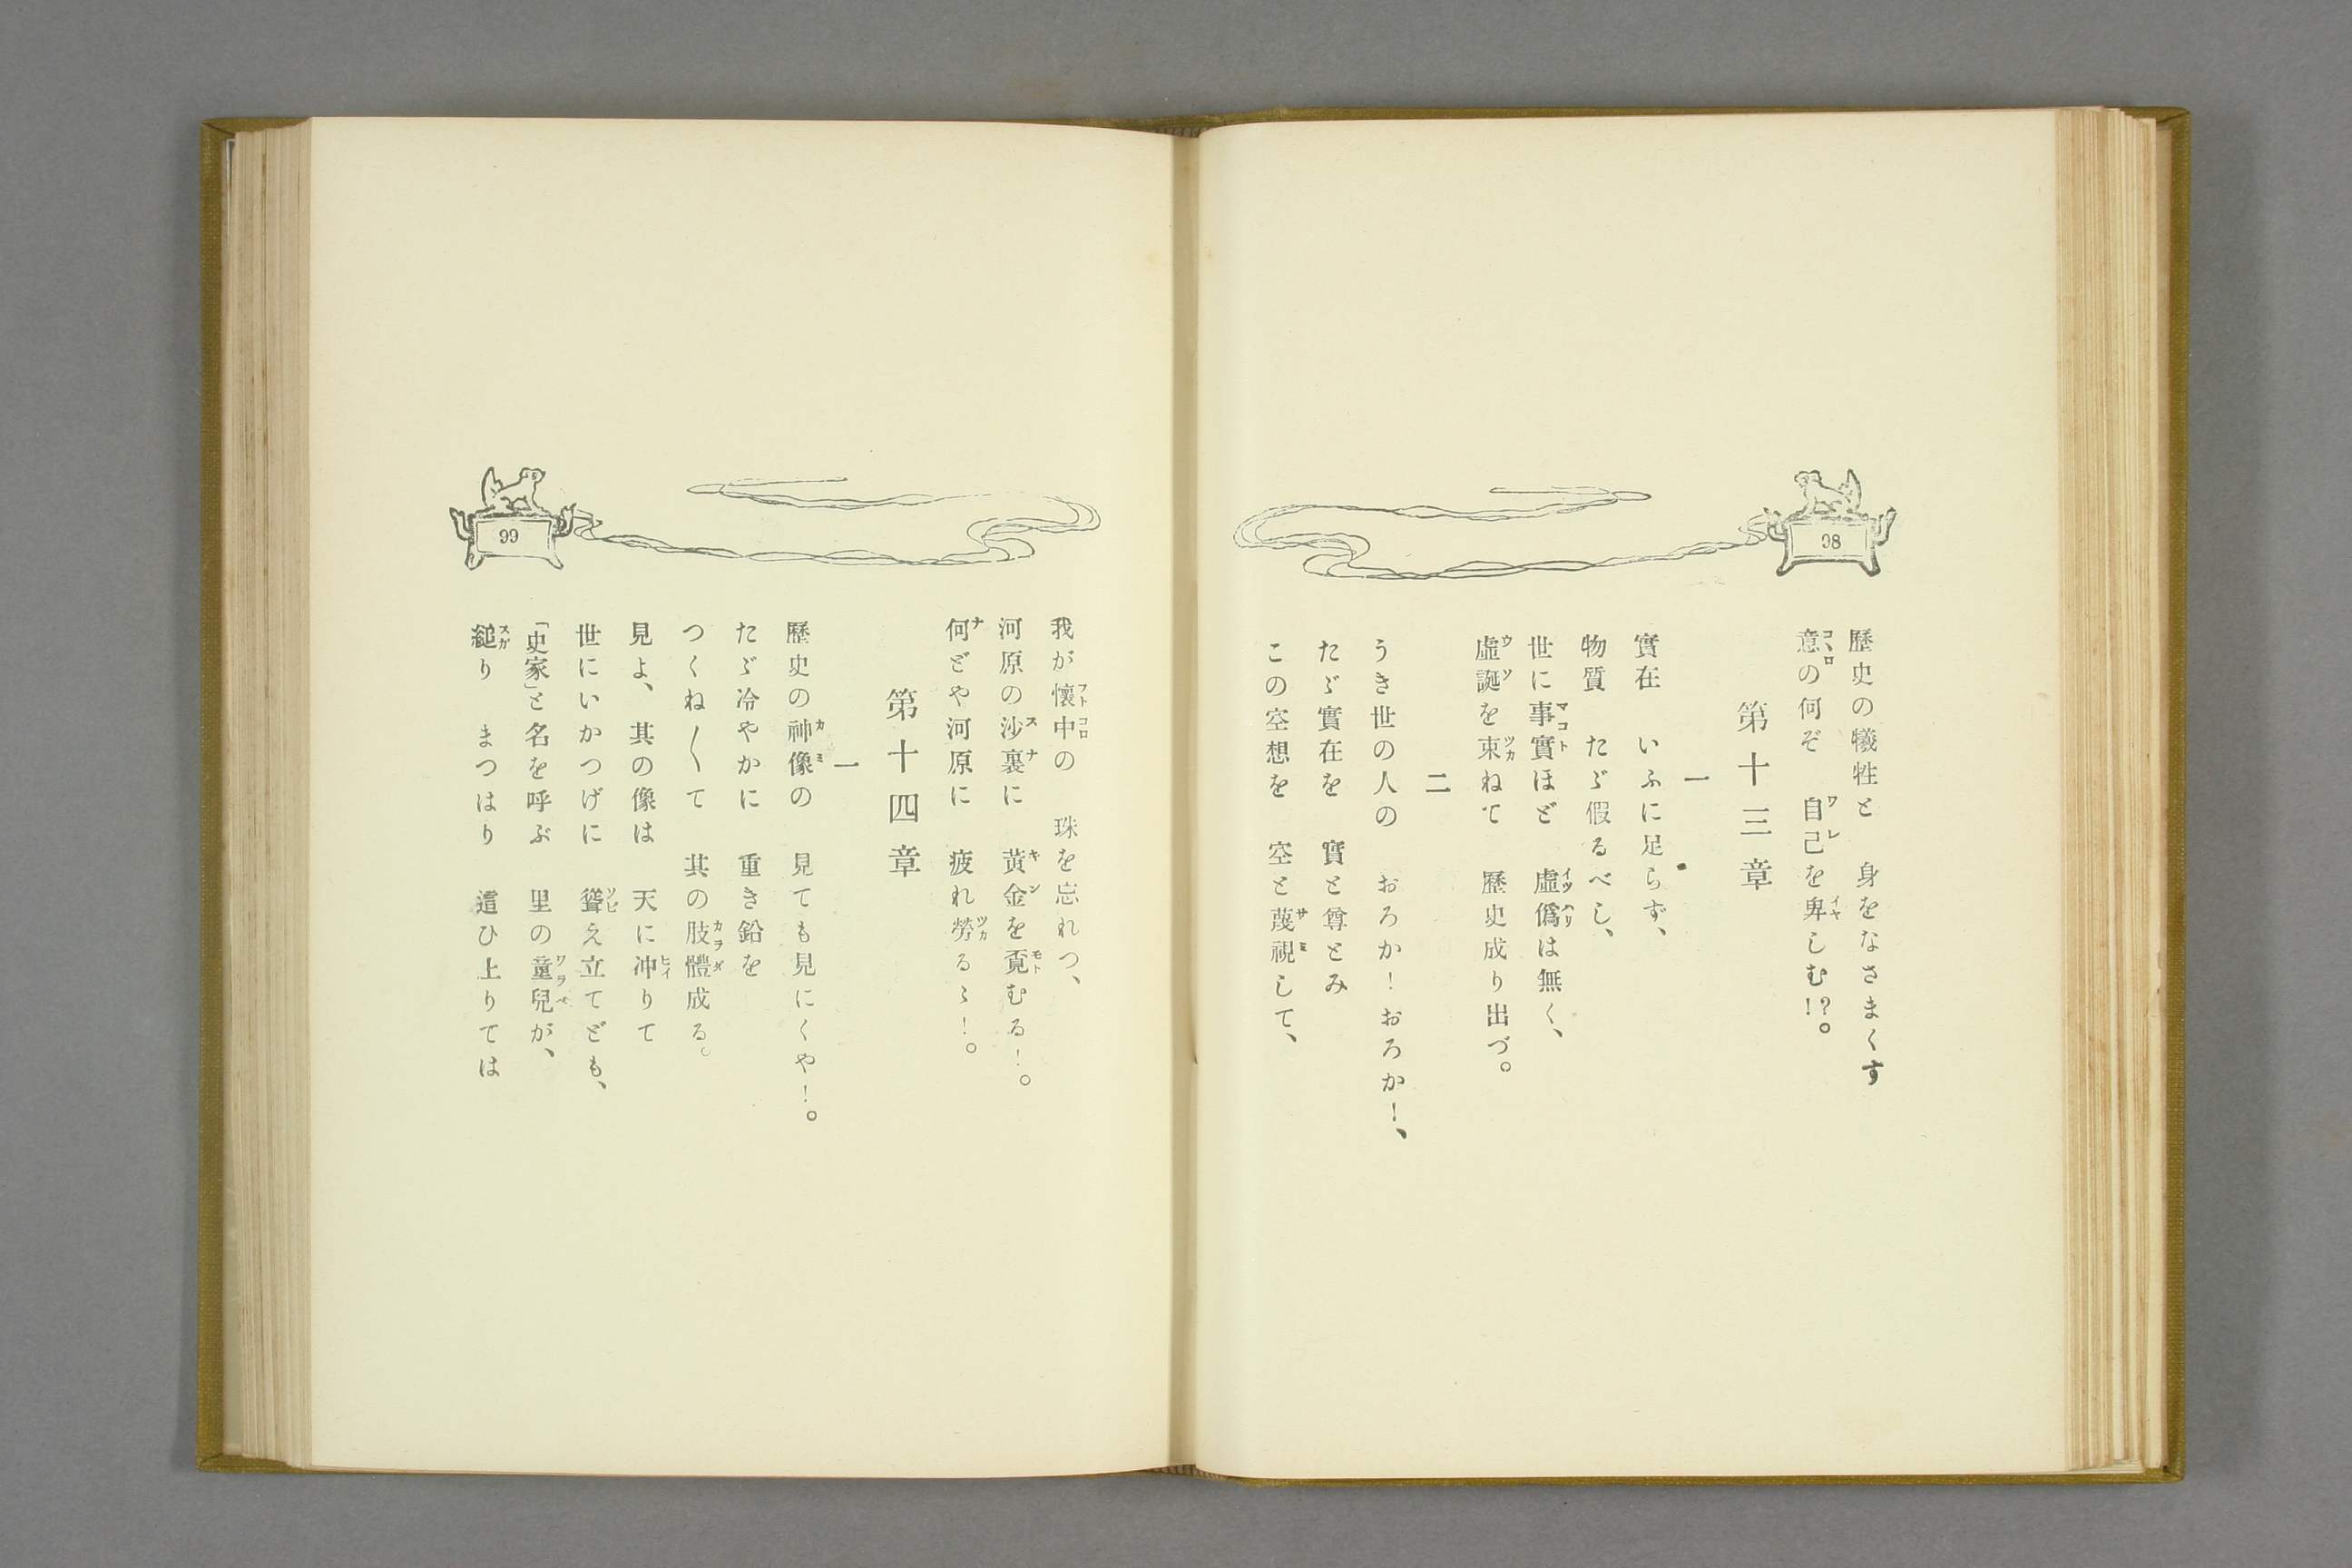 98
歷史の犧牲と　身をなさまくす
意の何ぞ　自己を卑しむ!?。
第十三章
一
實在　いふに足らず、
物質　たゞ假るべし、
世に事實ほど　虛僞は無く、
虛誕を束ねて　歷史成り出づ。
二
うき世の人の　おろか!おろか!、
たゞ實在を　實と尊とみ
この空想を　空と蔑視して、
99
我が懷中の　珠を忘れつ、
河原の沙裏に　黃金を覓むる!。
何どや河原に　疲れ勞るゝ!。
第十四章
一
歷史の神像の　見ても見にくや!。
たゞ冷やかに　重き鉛を
つくね〱て　其の肢體成る。
見よ、其の像は　天に冲りて
世にいかつげに　聳え立てども、
「史家」と名を呼ぶ　里の童兒が、
縋り　まつはり　這ひ上りては